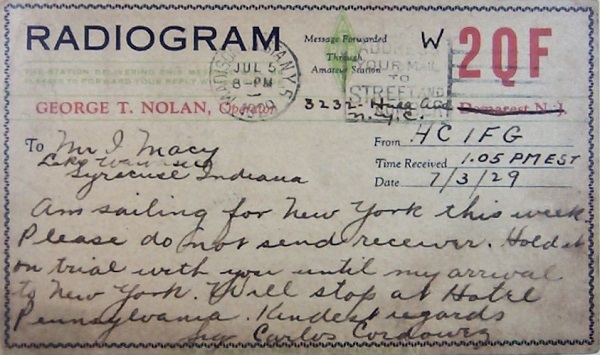 RADIOGRAM
Message Forwarded
Through
Amateur Station
W 2QF
JUL 5
8-PM
1929
ADDRESS
YOUR MAIL
TO
STREET AND
GEORGE T. NOLAN, Operator
3232 Ave
N.Y.C.
Demarest N. J.
To Mr I Macy
Lake Wawasee
Syracuse Indiana
From HC1FG
Time Received 1.05 PM EST
Date 7/3/29
Am sailing for New York this week
Please do not send receiver. Hold it
on trial with you until my arrival
to New York. Will stop at Hotel
Pennsylvania. Kindest regards
Sig Carlos Cordovez